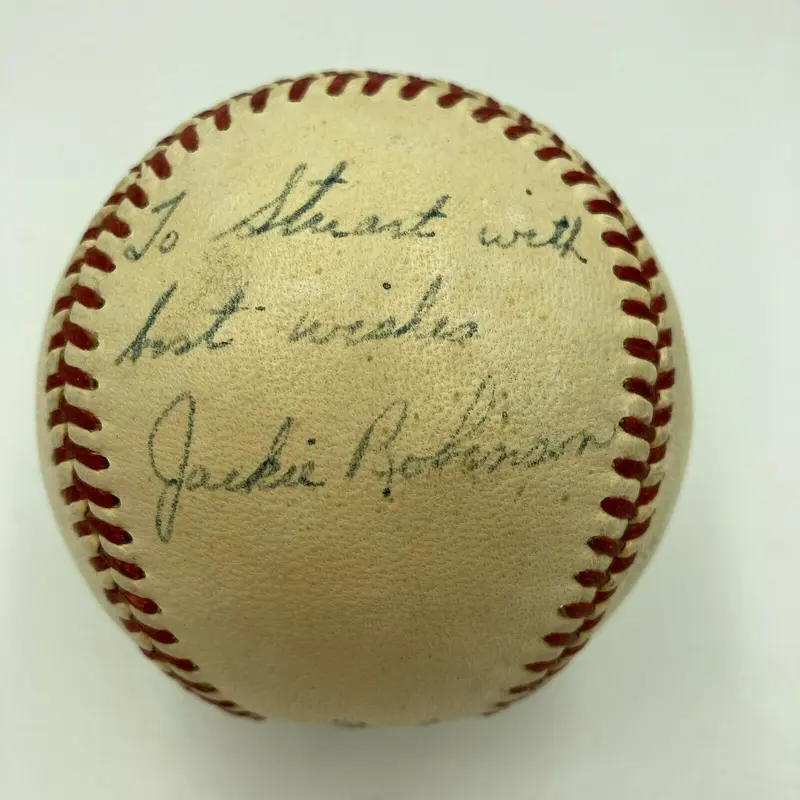 To Stuart with
best wishes
Jackie Robinson